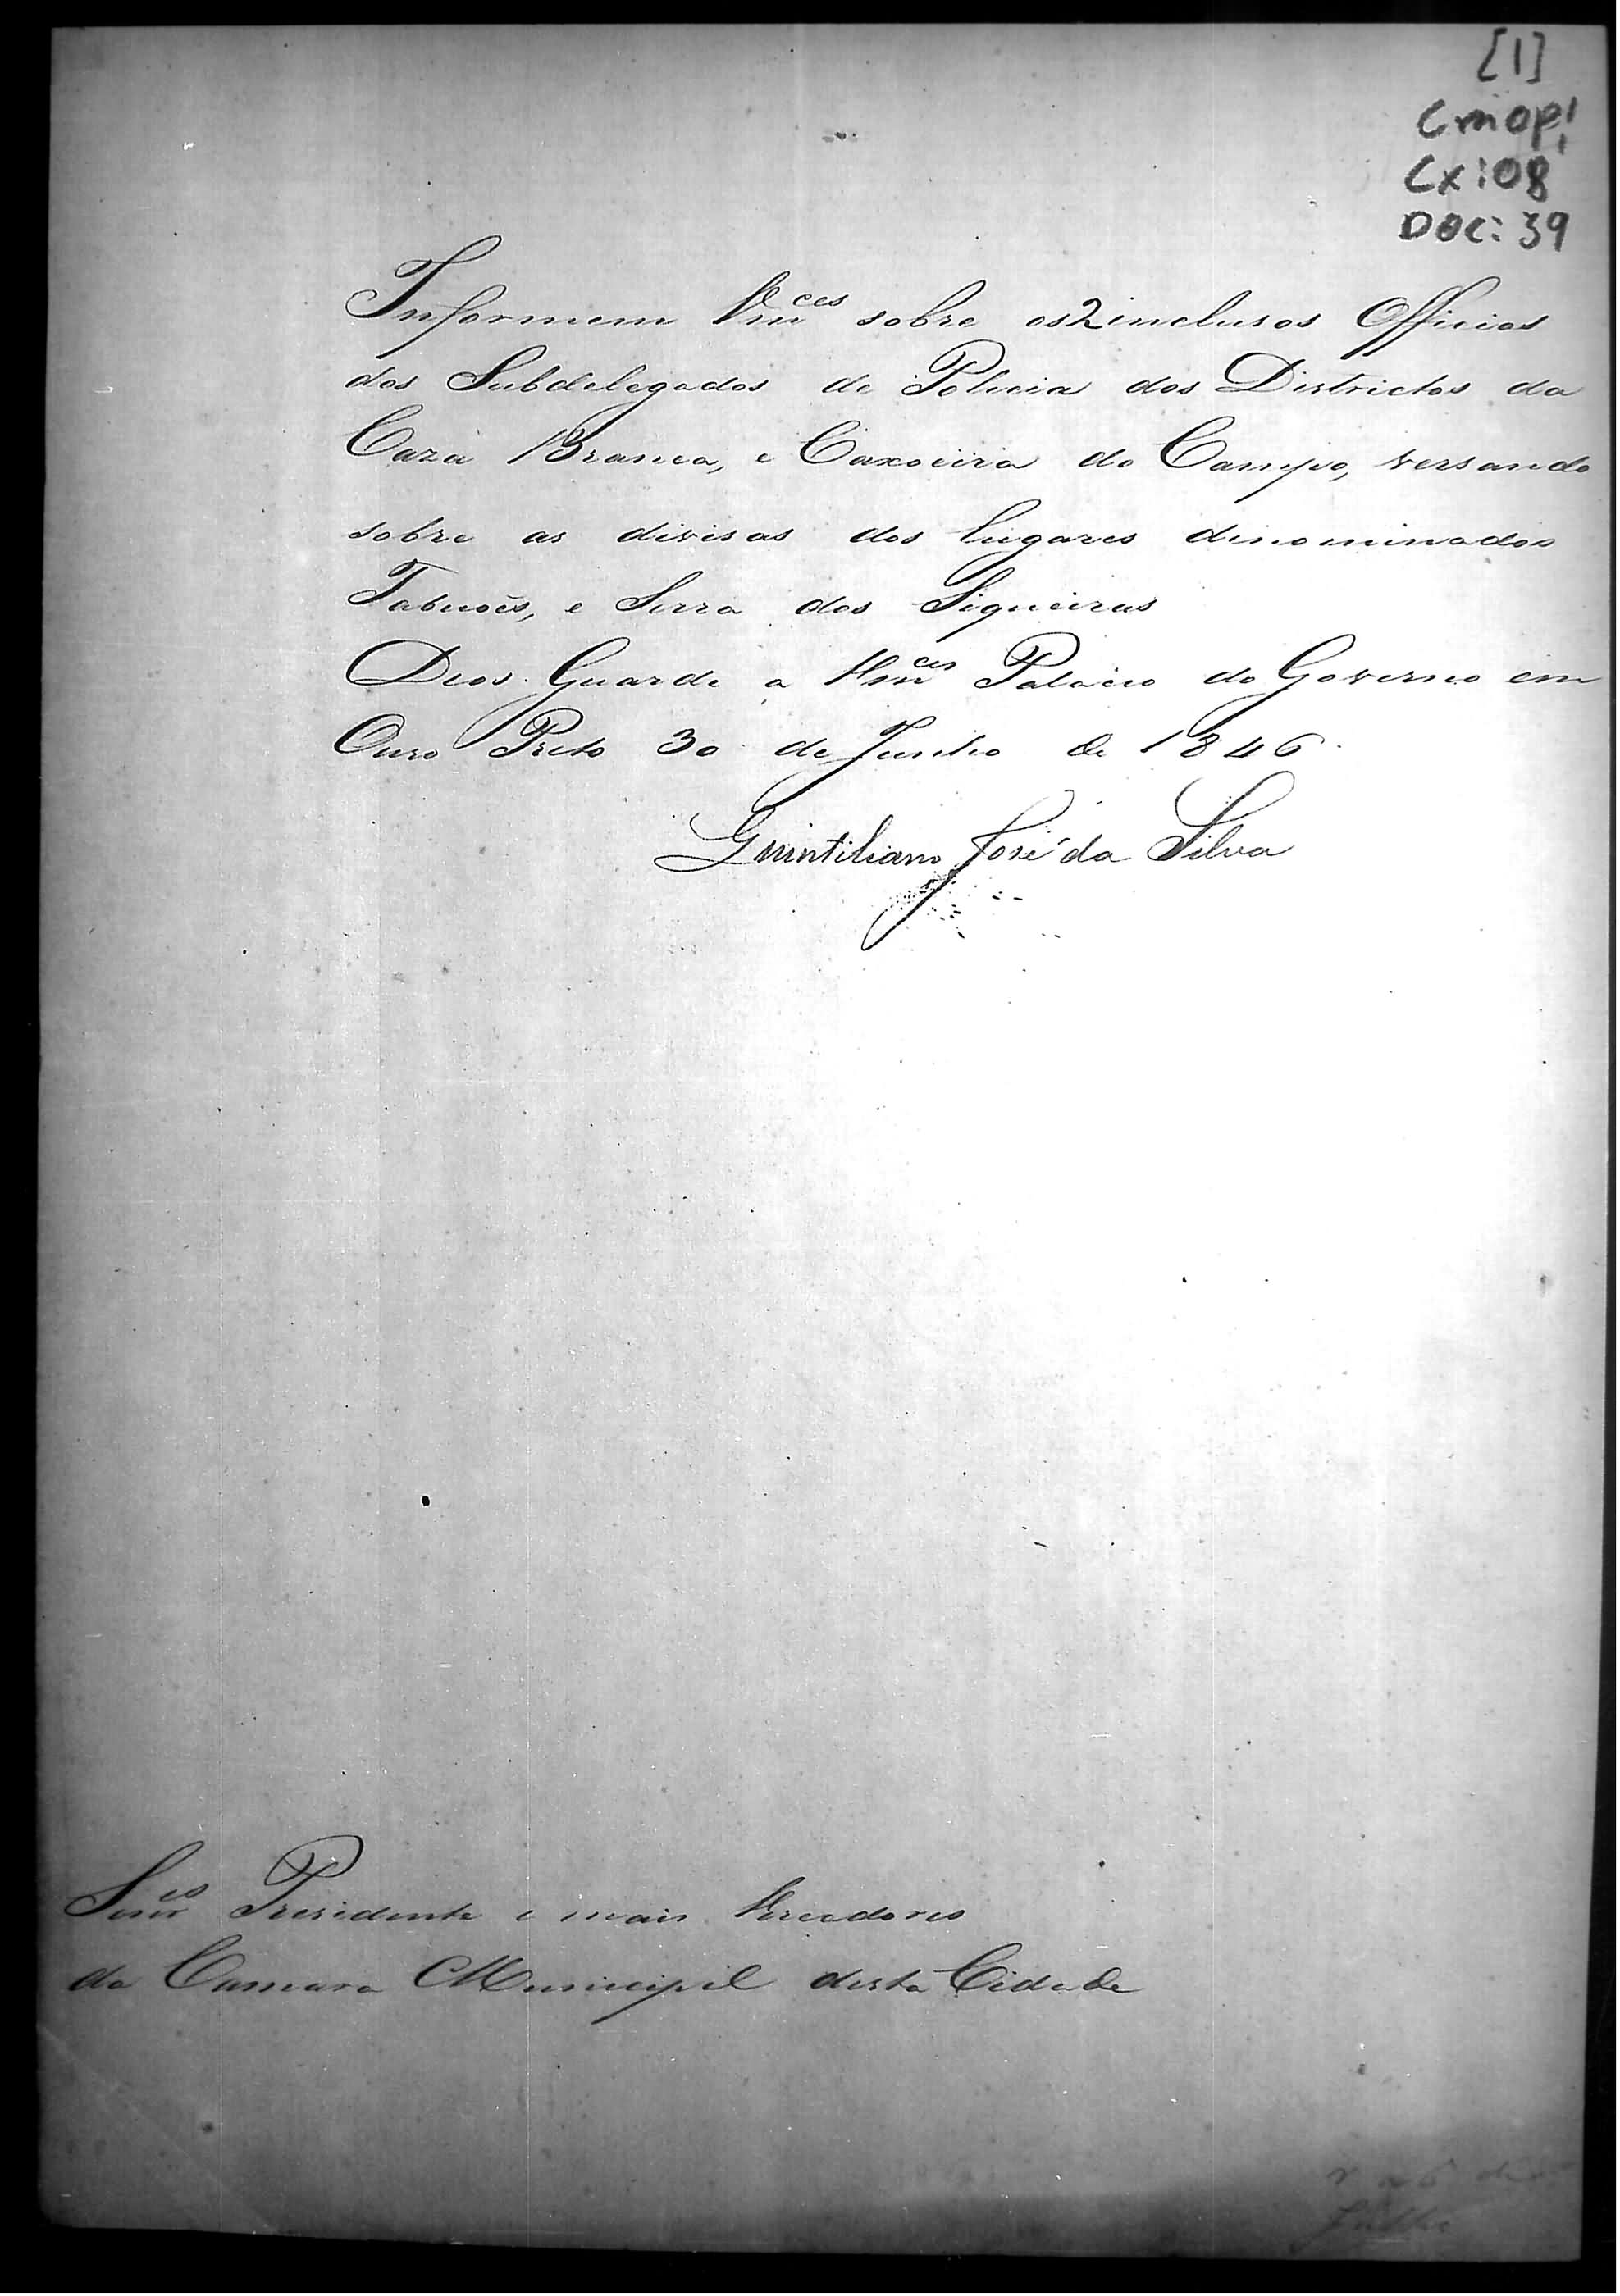 [1]
CMOP
Cx: 08
DOC: 39
Informem Vm.ces sobre os 2 inclusos Officios
dos Subdelegados de Policia dos Districtos da
Caza Branca, e Caxoeira do Campo, versando
sobre as divisas dos lugares dinominados
Taboões, e Serra dos Siqueiras
Deos Guarde a Vm.ces Palacio do Governo em
Ouro Preto 30 de Junho de 1846.
Quintiliano José da Silva
Snr.es Presidente e mais Vereadores
da Camara Municipal desta Cidade
6 de
Julho